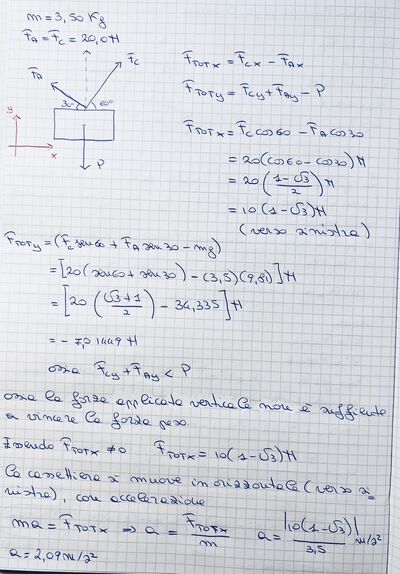 m = 3,50 Kg
F_A = F_C = 20,0 N
F_C
F_A
30°
60°
y
x
P
F_TOTx = F_Cx - F_Ax
F_TOTy = F_Cy + F_Ay - P
F_TOTx = F_C cos60 - F_A cos30
= 20(cos60 - cos30) N
= 20 ((1-√3)/2) N
= 10 (1-√3) N
(verso sinistra)
F_TOTy = (F_C sen60 + F_A sen30 - mg)
= [20(sen60 + sen30) - (3,5)(9,81)] N
= [20 ((√3+1)/2) - 34,335] N
= - 7,01449 N
ossia F_Cy + F_Ay < P
ossia la forza applicata verticale non è suffiente
a vincere la forza peso.
Essendo F_TOTx ≠ 0 F_TOTx = 10(1-√3) N
la cassettiera si muove in orizzontale (verso si
nistra), con accelerazione
ma = F_TOTx ⇒ a = F_TOTx/m a = |10(1-√3)|/3,5 m/s²
a = 2,09 m/s²